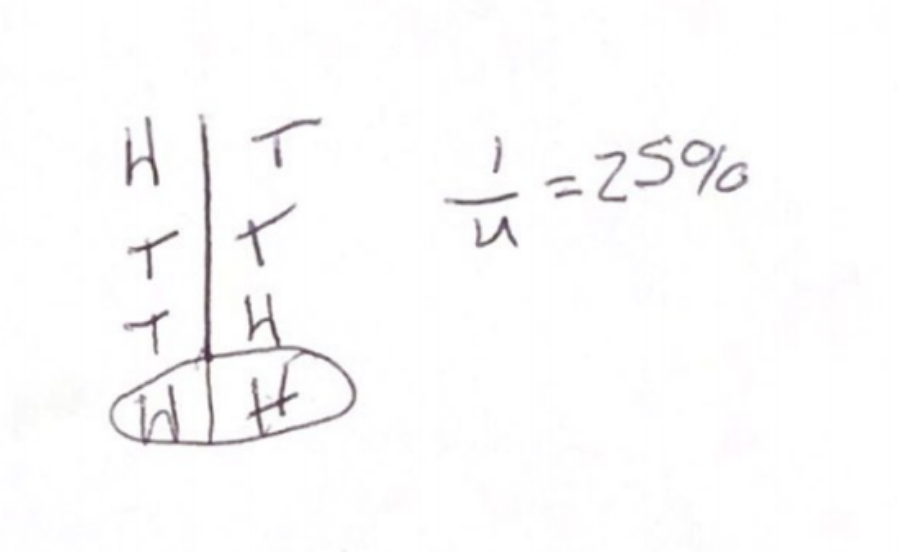 H | T
T | T
T | H
H | H
1/4 = 25%